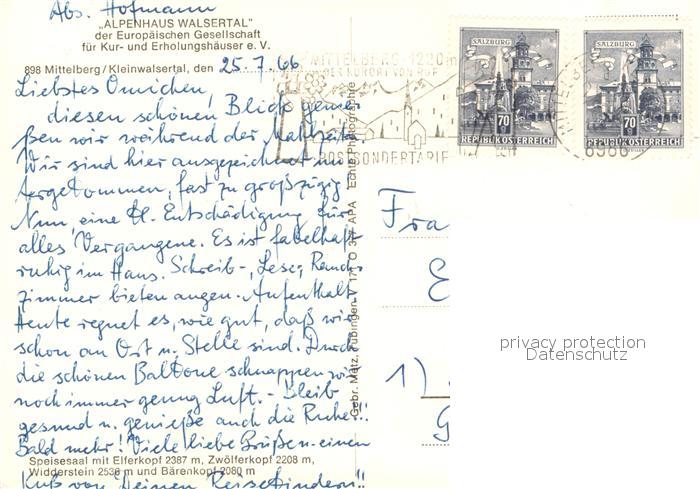 Abs. Hofmann
„ALPENHAUS WALSERTAL"
der Europäischen Gesellschaft
für Kur- und Erholungshäuser e. V.
898 Mittelberg / Kleinwalsertal, den 25.7.66
Liebstes Omichen,
diesen schönen Blick genies-
ßen wir während der Mahlzeit.
Wir sind hier ausgezeichnet un-
tergekommen, fast zu großzügig.
Nun, eine kl. Entschädigung für
alles Vergangene. Es ist fabelhaft
ruhig im Haus. Schreib-, Lese-, Rauch-
zimmer bieten angen. Aufenthalt.
Heute regnet es, wie gut, daß wir
schon an Ort u. Stelle sind. Durch
die schönen Balkone schnappen wir
noch immer genug Luft. - Bleib
gesund u. genieße auch die Ruhe!!
Bald mehr! Viele liebe Grüße u. einen
Speisesaal mit Elferkopf 2387 m, Zwölferkopf 2208 m,
Widderstein 2536 m und Bärenkopf 2080 m
Kuß von Deinen Reisekindern!!
Gebr. Metz, Tübingen V 171 O 377 APA Echte Photographie
MITTELBERG 1220 m
DER KURORT VON RUF
POSTSONDERTARIF
SALZBURG
70
REPUBLIK ÖSTERREICH
SALZBURG
70
REPUBLIK ÖSTERREICH
6986
Fra
E
1)
G
privacy protection
Datenschutz